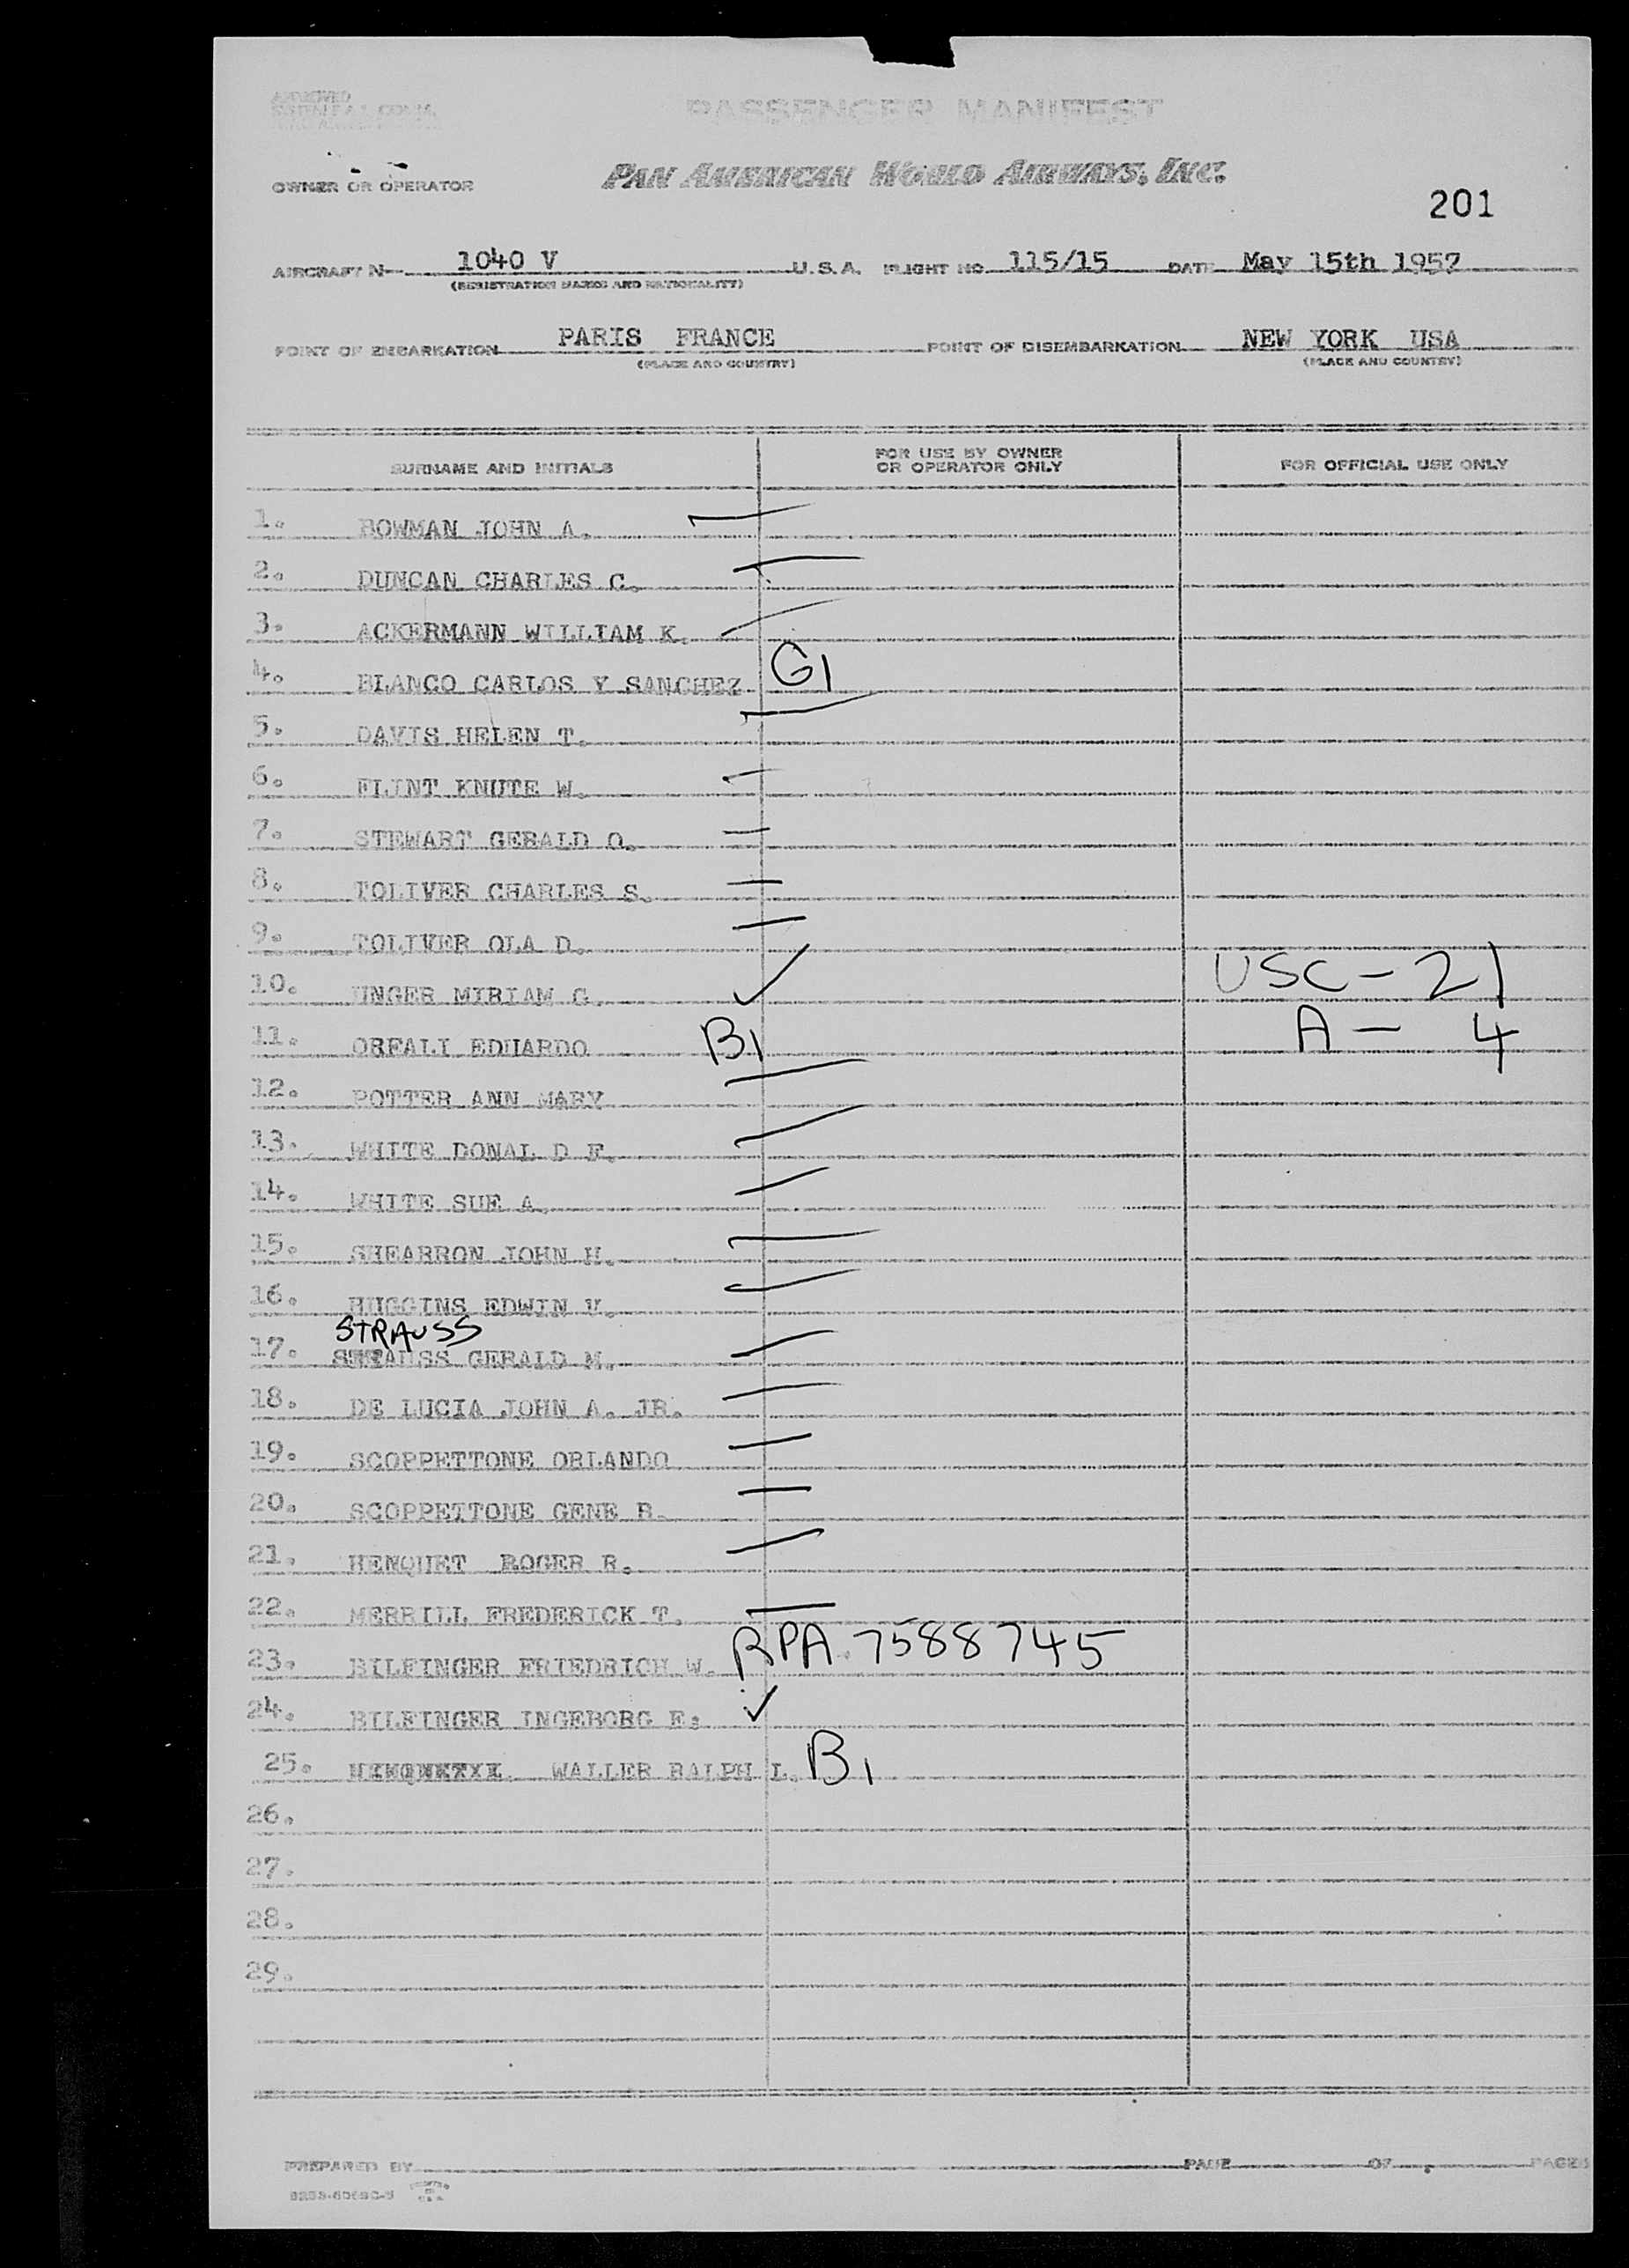 PASSENGER MANIFEST
OWNER OR OPERATOR PAN AMERICAN WORLD AIRWAYS, INC.
201
AIRCRAFT N 1040 V U.S.A. FLIGHT NO. 115/15 DATE May 15th 1957
(REGISTRATION MARKS AND NATIONALITY)
POINT OF EMBARKATION PARIS FRANCE POINT OF DISEMBARKATION NEW YORK USA
(PLACE AND COUNTRY) (PLACE AND COUNTRY)
SURNAME AND INITIALS FOR USE BY OWNER OR OPERATOR ONLY FOR OFFICIAL USE ONLY
1. BOWMAN JOHN A.
2. DUNCAN CHARLES C.
3. ACKERMANN WILLIAM K.
4. BLANCO CARLOS Y SANCHEZ G1
5. DAVIS HELEN T.
6. FLINT KNUTE W.
7. STEWART GERALD O.
8. TOLIVER CHARLES S.
9. TOLIVER OLA D.
10. UNGER MIRIAM G. USC - 21
11. ORFALI EDUARDO B1 A - 4
12. POTTER ANN MARY
13. WHITE DONAL D F.
14. WHITE SUE A.
15. SHEARRON JOHN H.
16. HUGGINS EDWIN V.
STRAUSS
17. STRAUSS GERALD M.
18. DE LUCIA JOHN A. JR.
19. SCOPPETTONE ORLANDO
20. SCOPPETTONE GENE B.
21. HENQUET ROGER R.
22. MERRILL FREDERICK T.
23. BILFINGER FRIEDRICH W. RPA 7588745
24. BILFINGER INGEBORG E.
25. WALLER RALPH L. B1
26.
27.
28.
29.
PREPARED BY PAGE OF PAGES